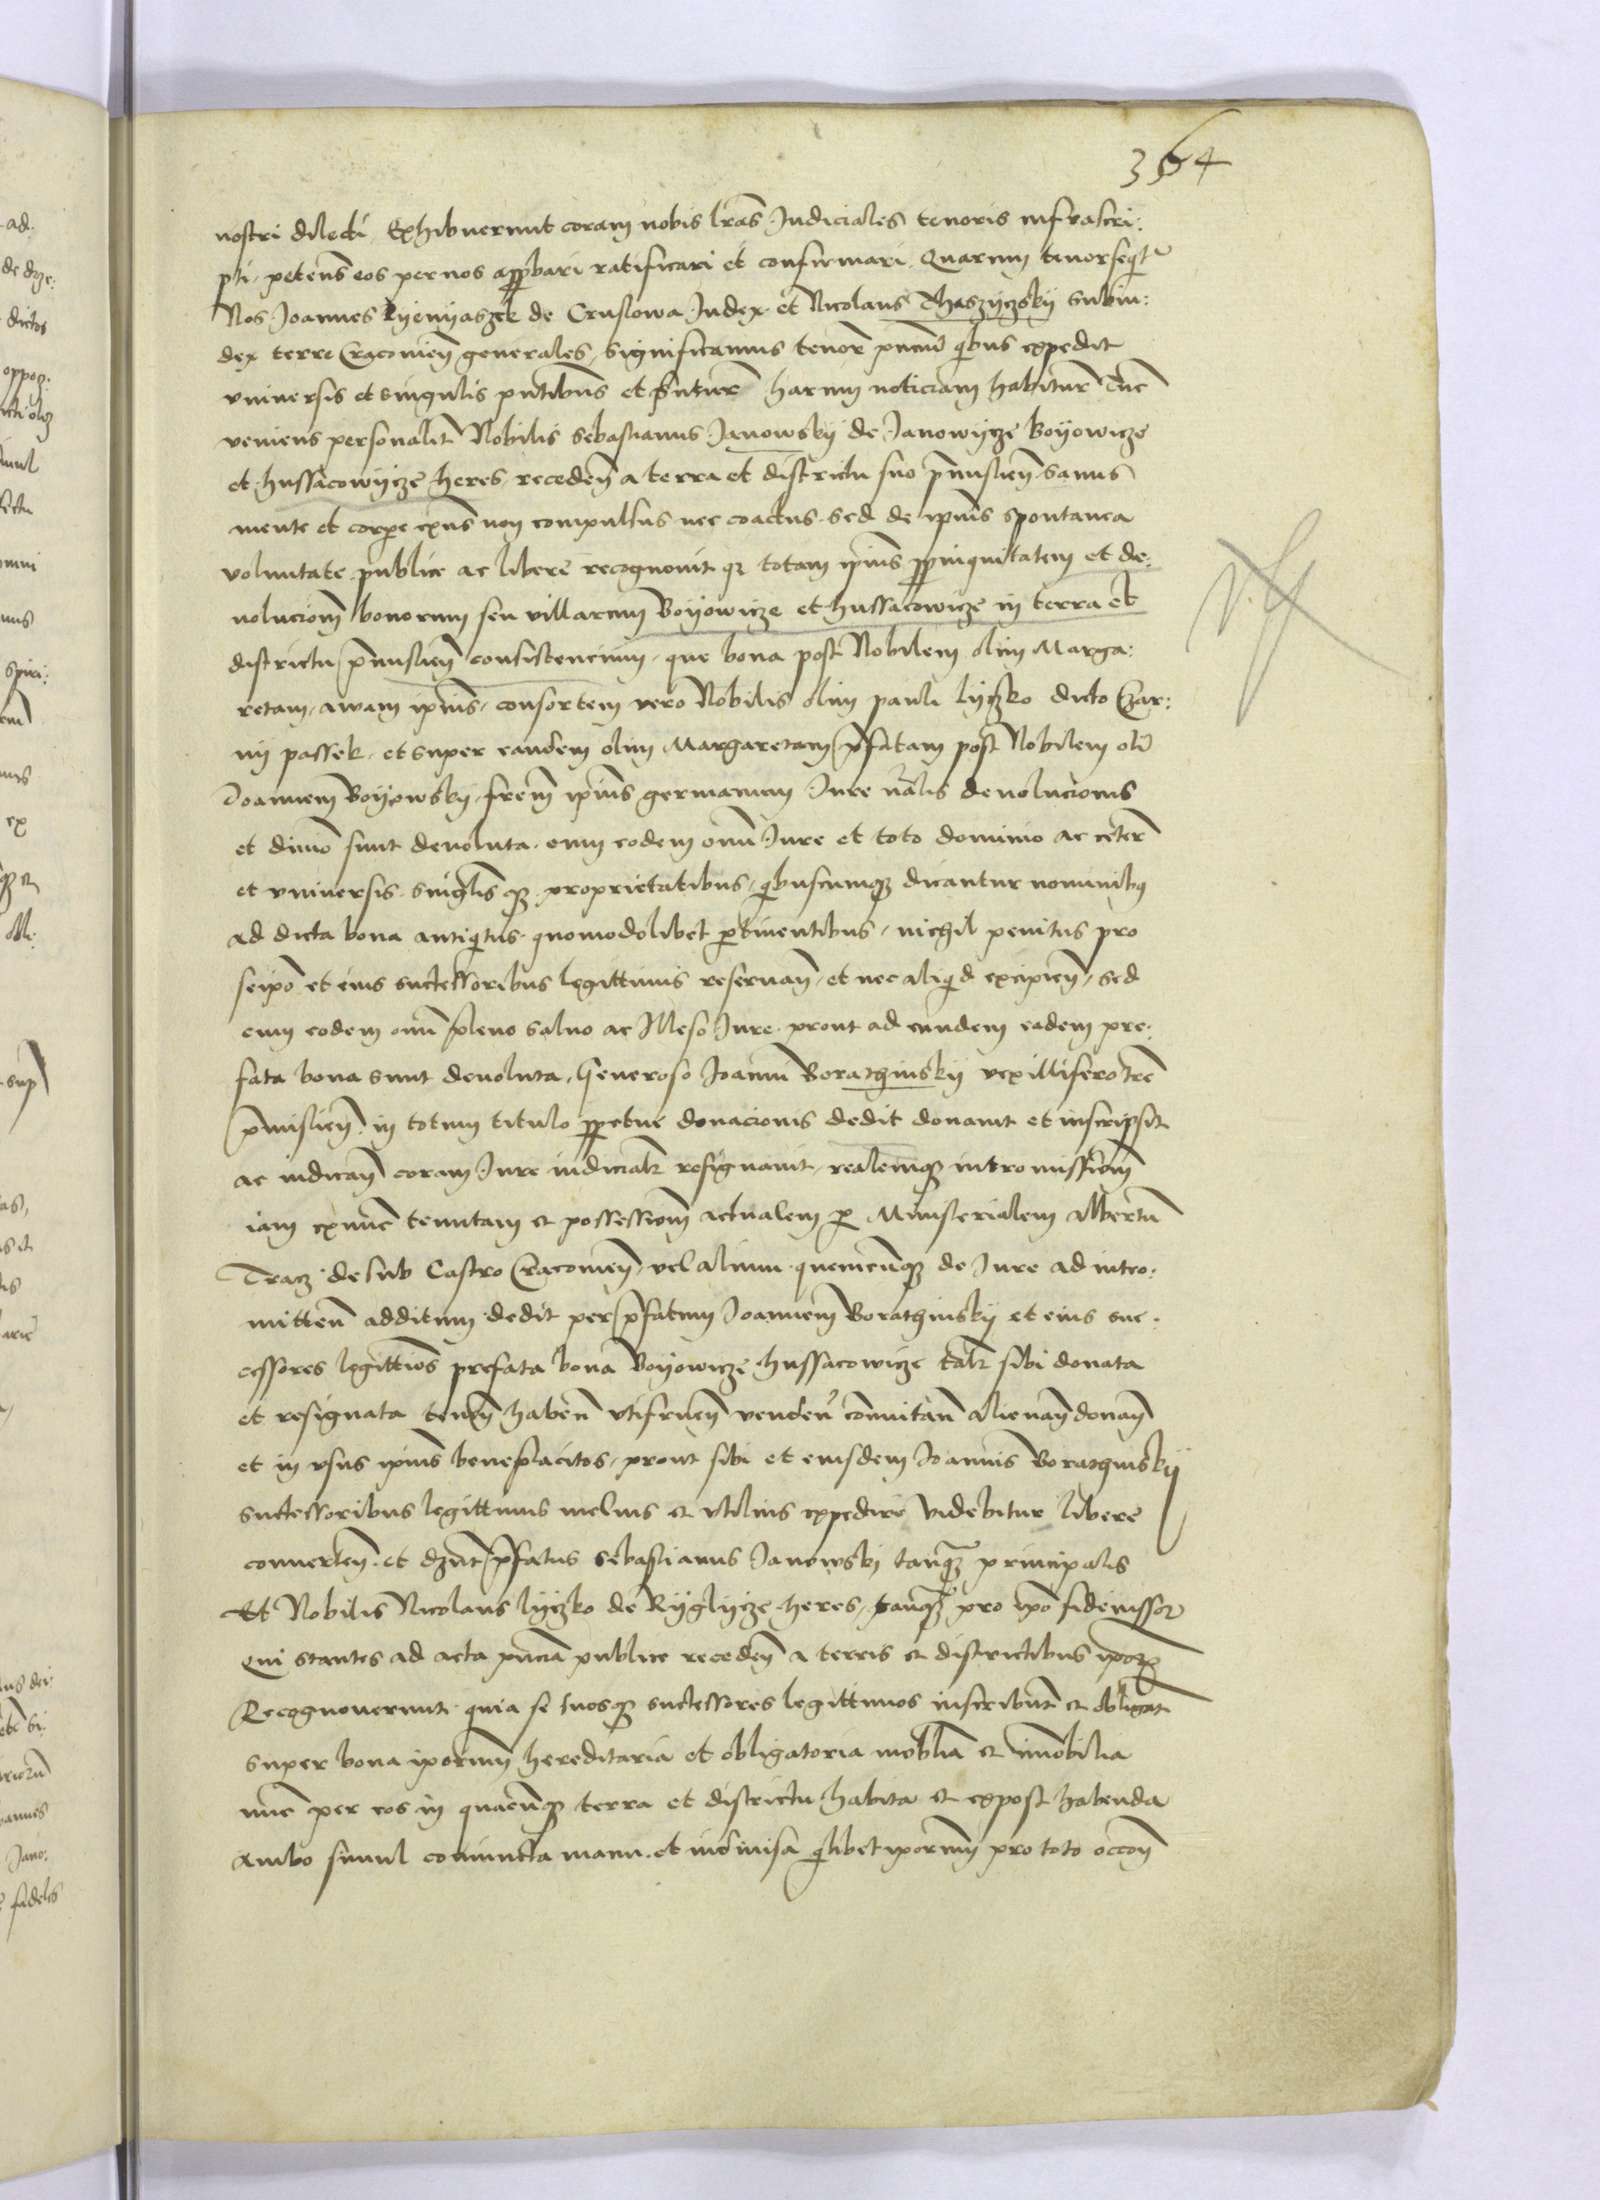 364
nostri dilecti Exhibuerunt coram nobis lras Judiciales tenoris infrascri:
pti petens eos per nos approbari ratificari et confirmari Quarum tenor sequit
Nos Joannes Kyenyaszek de Cruslowa Judex et Nicolaus Thaszyczsky Subiu:
dex terre Cracouien generales, significamus tenor pncm quibus expedit
vniuersis et singulis pntibus et futur harum noticiam habitur Quod
veniens personalit Nobilis Sebastianus Janowsky de Janowycze Boyowicze
et hussacowycze heres, receden a terra et districtu suo premislien sanus
mente et corpe exns non compulsus nec coactus sed de ipius spontanea
voluntate publice ac libere recognouit quia totam ipius propinquitatem et de:
uolucionem bonorum seu villarum Boyowicze et hussacowicze in terra et
districtu premislien consistencium, que bona post Nobilem olim Marga:
retam, awam ipius, consortem vero Nobilis olim pauli lyczko dicto Czar:
ny passek, et super eandem olim Margaretam prefatam post Nobilem oli
Joannem Boyowsky, frem ipius germanum Jure nalis deuolucionis
et diuio sunt deuoluta, cum eodem omi Jure et toto dominio ac ceter
et vniuersis singlis que proprietatibus, quibuscumque dicantur nominibus
ad dicta bona antiquitus quomodolibet pertinentibus, nichil penitus pro
seipo et eius successoribus legittimis reseruan, et nec aliquid excipien, sed
cum eodem omi pleno saluo ac Illeso Jure prout ad eundem eadem pre:
fata bona sunt deuoluta, Generoso Joanni Borathinsky vexillifero tre
premislien in totum titulo perpetue donacionis dedit donauit et inscripsit
ac iudican coram Jure iudicialr resignauit, realemque intromissionem
iam exnunc tenutam et possessionem actualem per Ministerialem Albertum
Tracz de sub Castro Cracouien vel alium quemcunque de Jure ad intro:
mitten additum dedit per prefatum Joannem Borathinsky et eius suc:
cessores legittios prefata bona Boyowicze hussacowicze talr sibi donata
et resignata tenen haben vtifruen venden comutan alienan donan
et in vsus ipius beneplacitos, prout sibi et eiusdem Joannis Borathinsky
successoribus legittimis melius et vtilius expedire videbitur libere
conuerten et prefatus Sebastianus Janowsky tanquam principalis
Et Nobilis Nicolaus lyczko de Ryglycze heres, tanquam pro ipo fideiussor
Qui stantes ad acta pncia publice receden a terris et districtibus ipor
Recognouerunt quia se suosque successores legittimos inscribunt et obligat
super bona iporum hereditaria et obligatoria mobilia et imobilia
nunc per eos in quacunque terra et districtu habita et expost habenda
Ambo simul coniuncta manu et indiuisa quilibet iporum pro toto occon